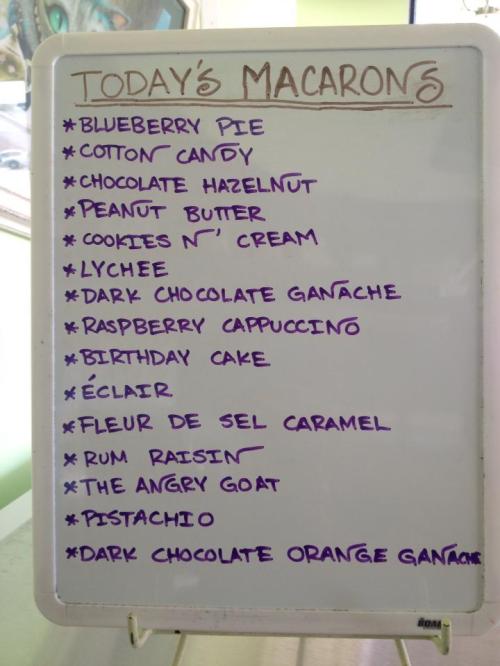 TODAY'S MACARONS
*BLUEBERRY PIE
*COTTON CANDY
*CHOCOLATE HAZELNUT
*PEANUT BUTTER
*COOKIES N' CREAM
*LYCHEE
*DARK CHOCOLATE GANACHE
*RASPBERRY CAPPUCCINO
*BIRTHDAY CAKE
*ÉCLAIR
*FLEUR DE SEL CARAMEL
*RUM RAISIN
*THE ANGRY GOAT
*PISTACHIO
*DARK CHOCOLATE ORANGE GANACHE